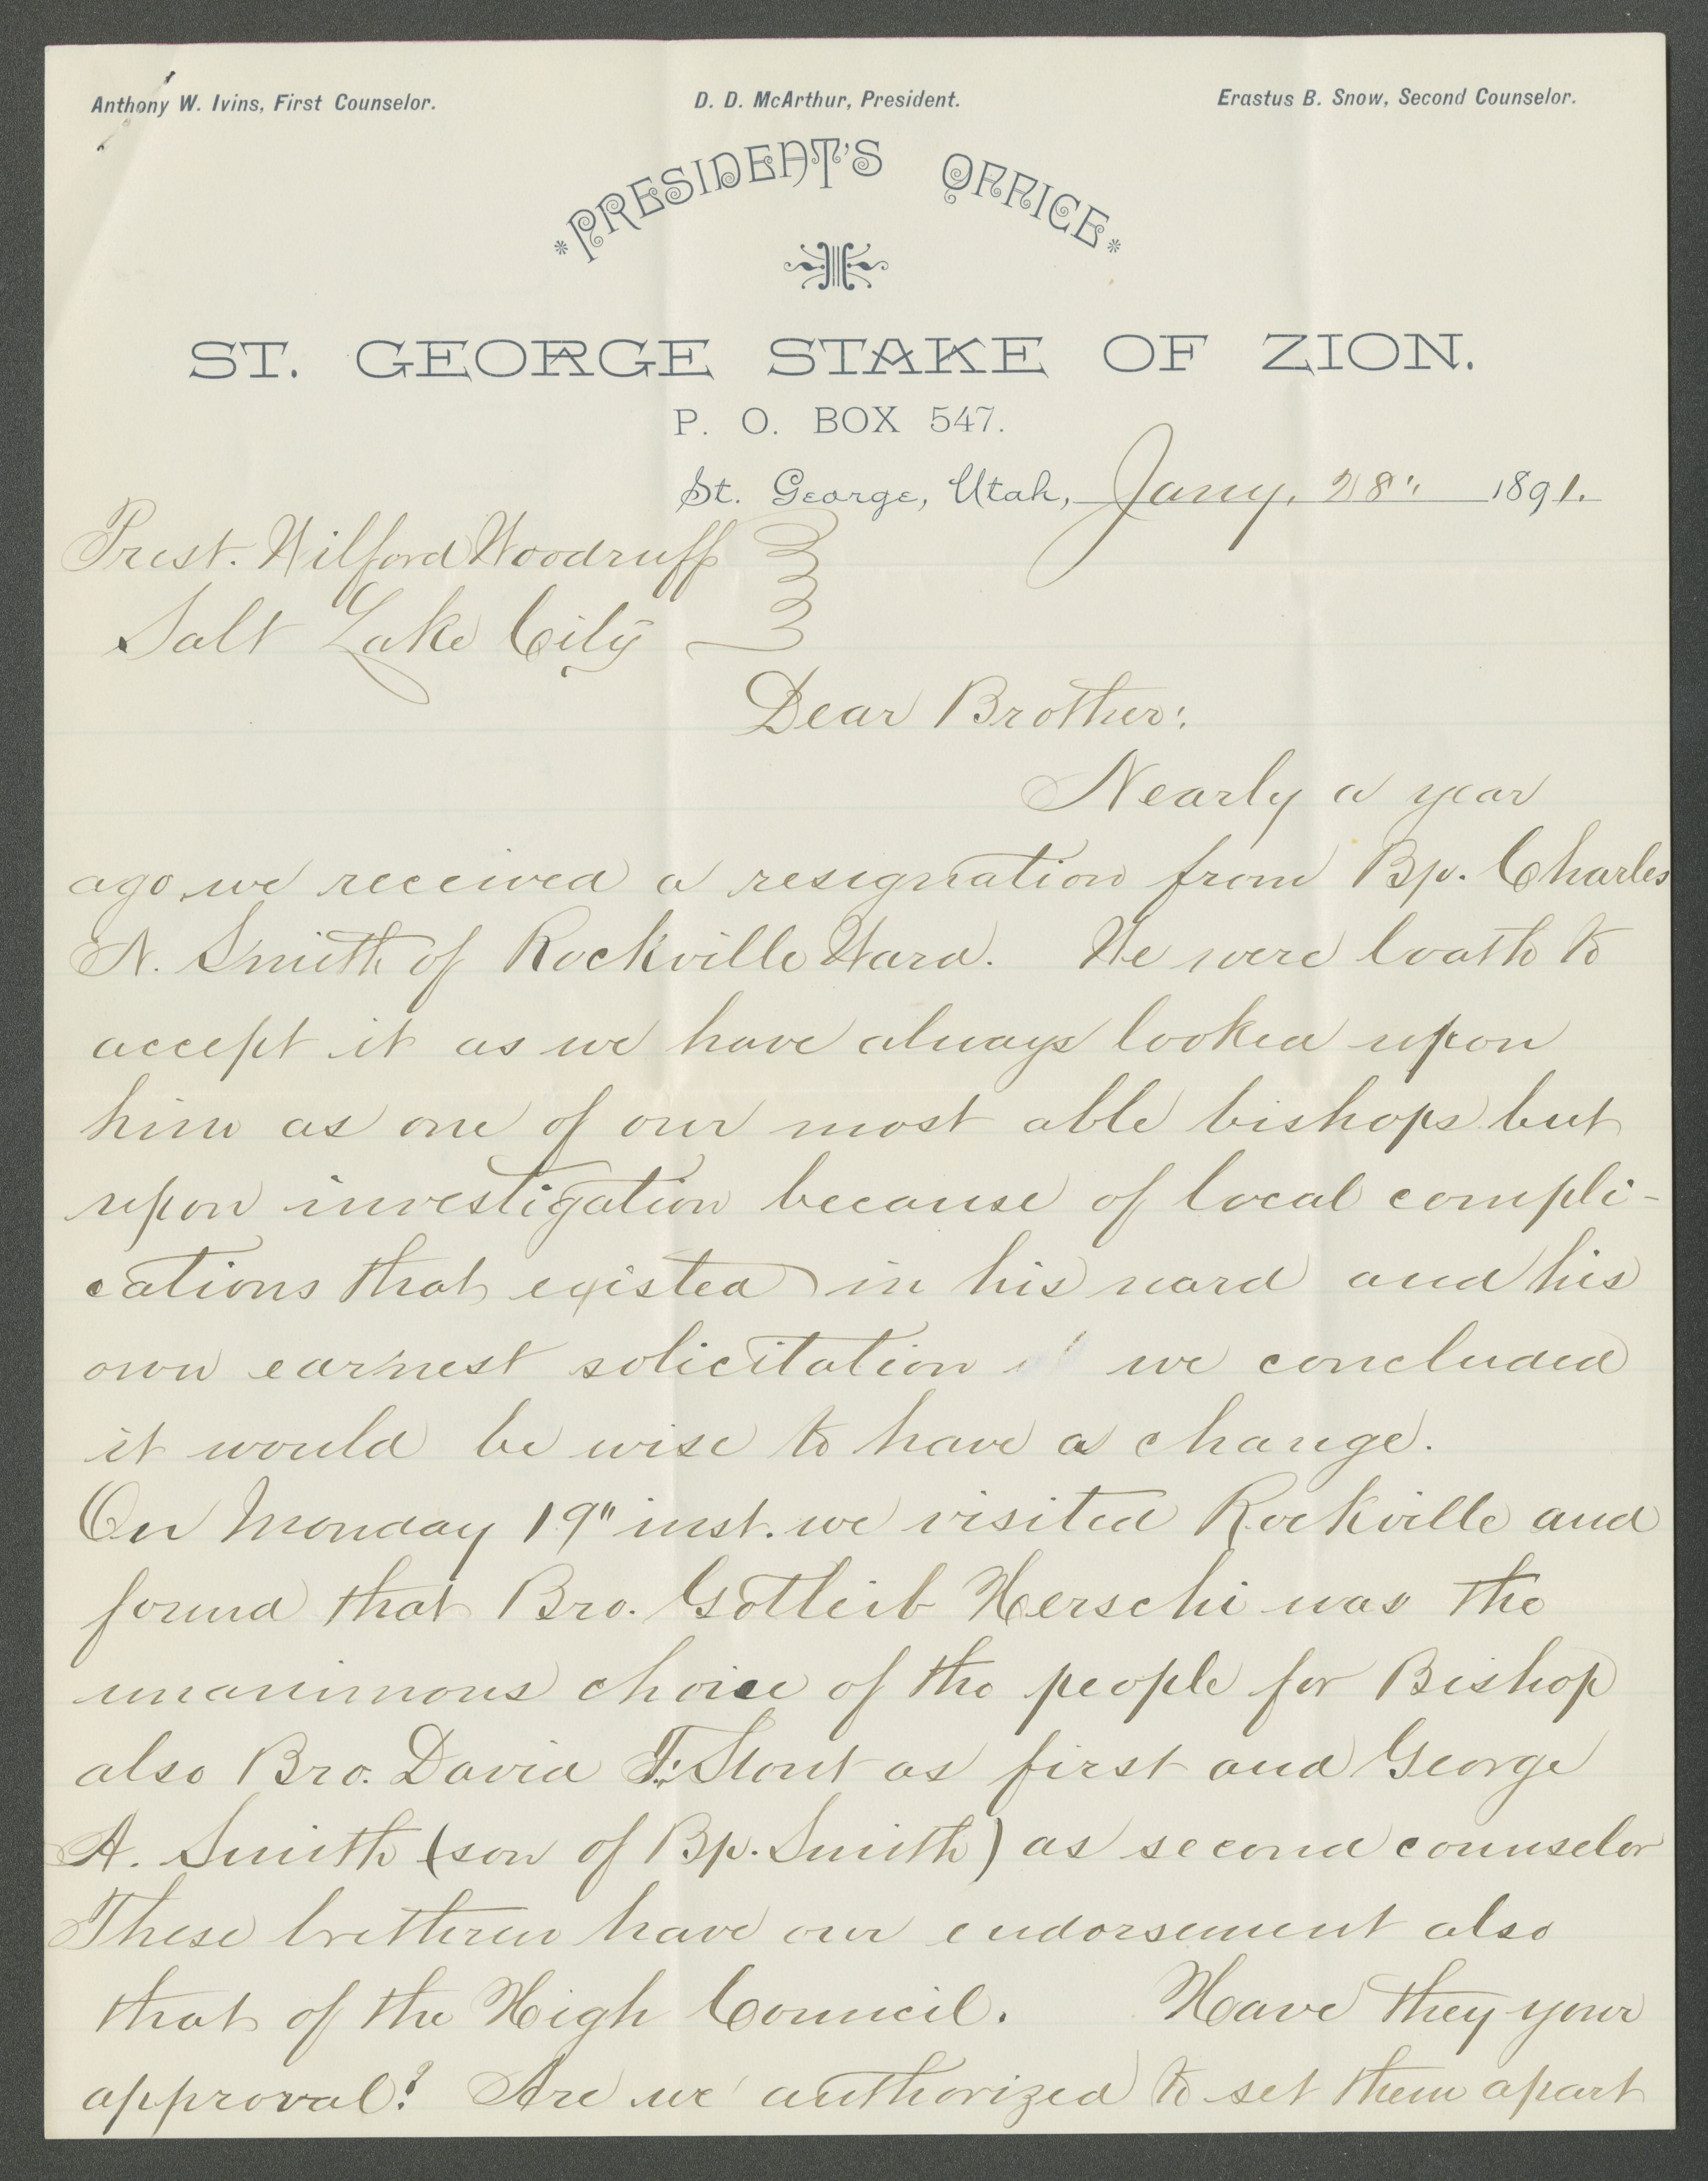 Anthony W. Ivins, First Counselor. D. D. McArthur, President. Erastus B. Snow, Second Counselor.
*PRESIDENT'S OFFICE*
ST. GEORGE STAKE OF ZION.
P. O. BOX 547.
St. George, Utah, Jany. 28" 1891.
Prest. Wilford Woodruff
Salt Lake City
Dear Brother:
Nearly a year
ago we received a resignation from Bp. Charles
N. Smith of Rockville Ward. We were loath to
accept it as we have always looked upon
him as one of our most able bishops but
upon investigation because of local compli-
cations that existed in his ward and his
own earnest solicitation we concluded
it would be wise to have a change.
On Monday 19" inst. we visited Rockville and
found that Bro. Gotleib Herschi was the
unanimous choice of the people for Bishop
also Bro. David F. Stout as first and George
A. Smith (son of Bp. Smith) as second counselor
These bretheren have our endorsement also
that of the High Council. Have they your
approval? Are we authorized to set them apart